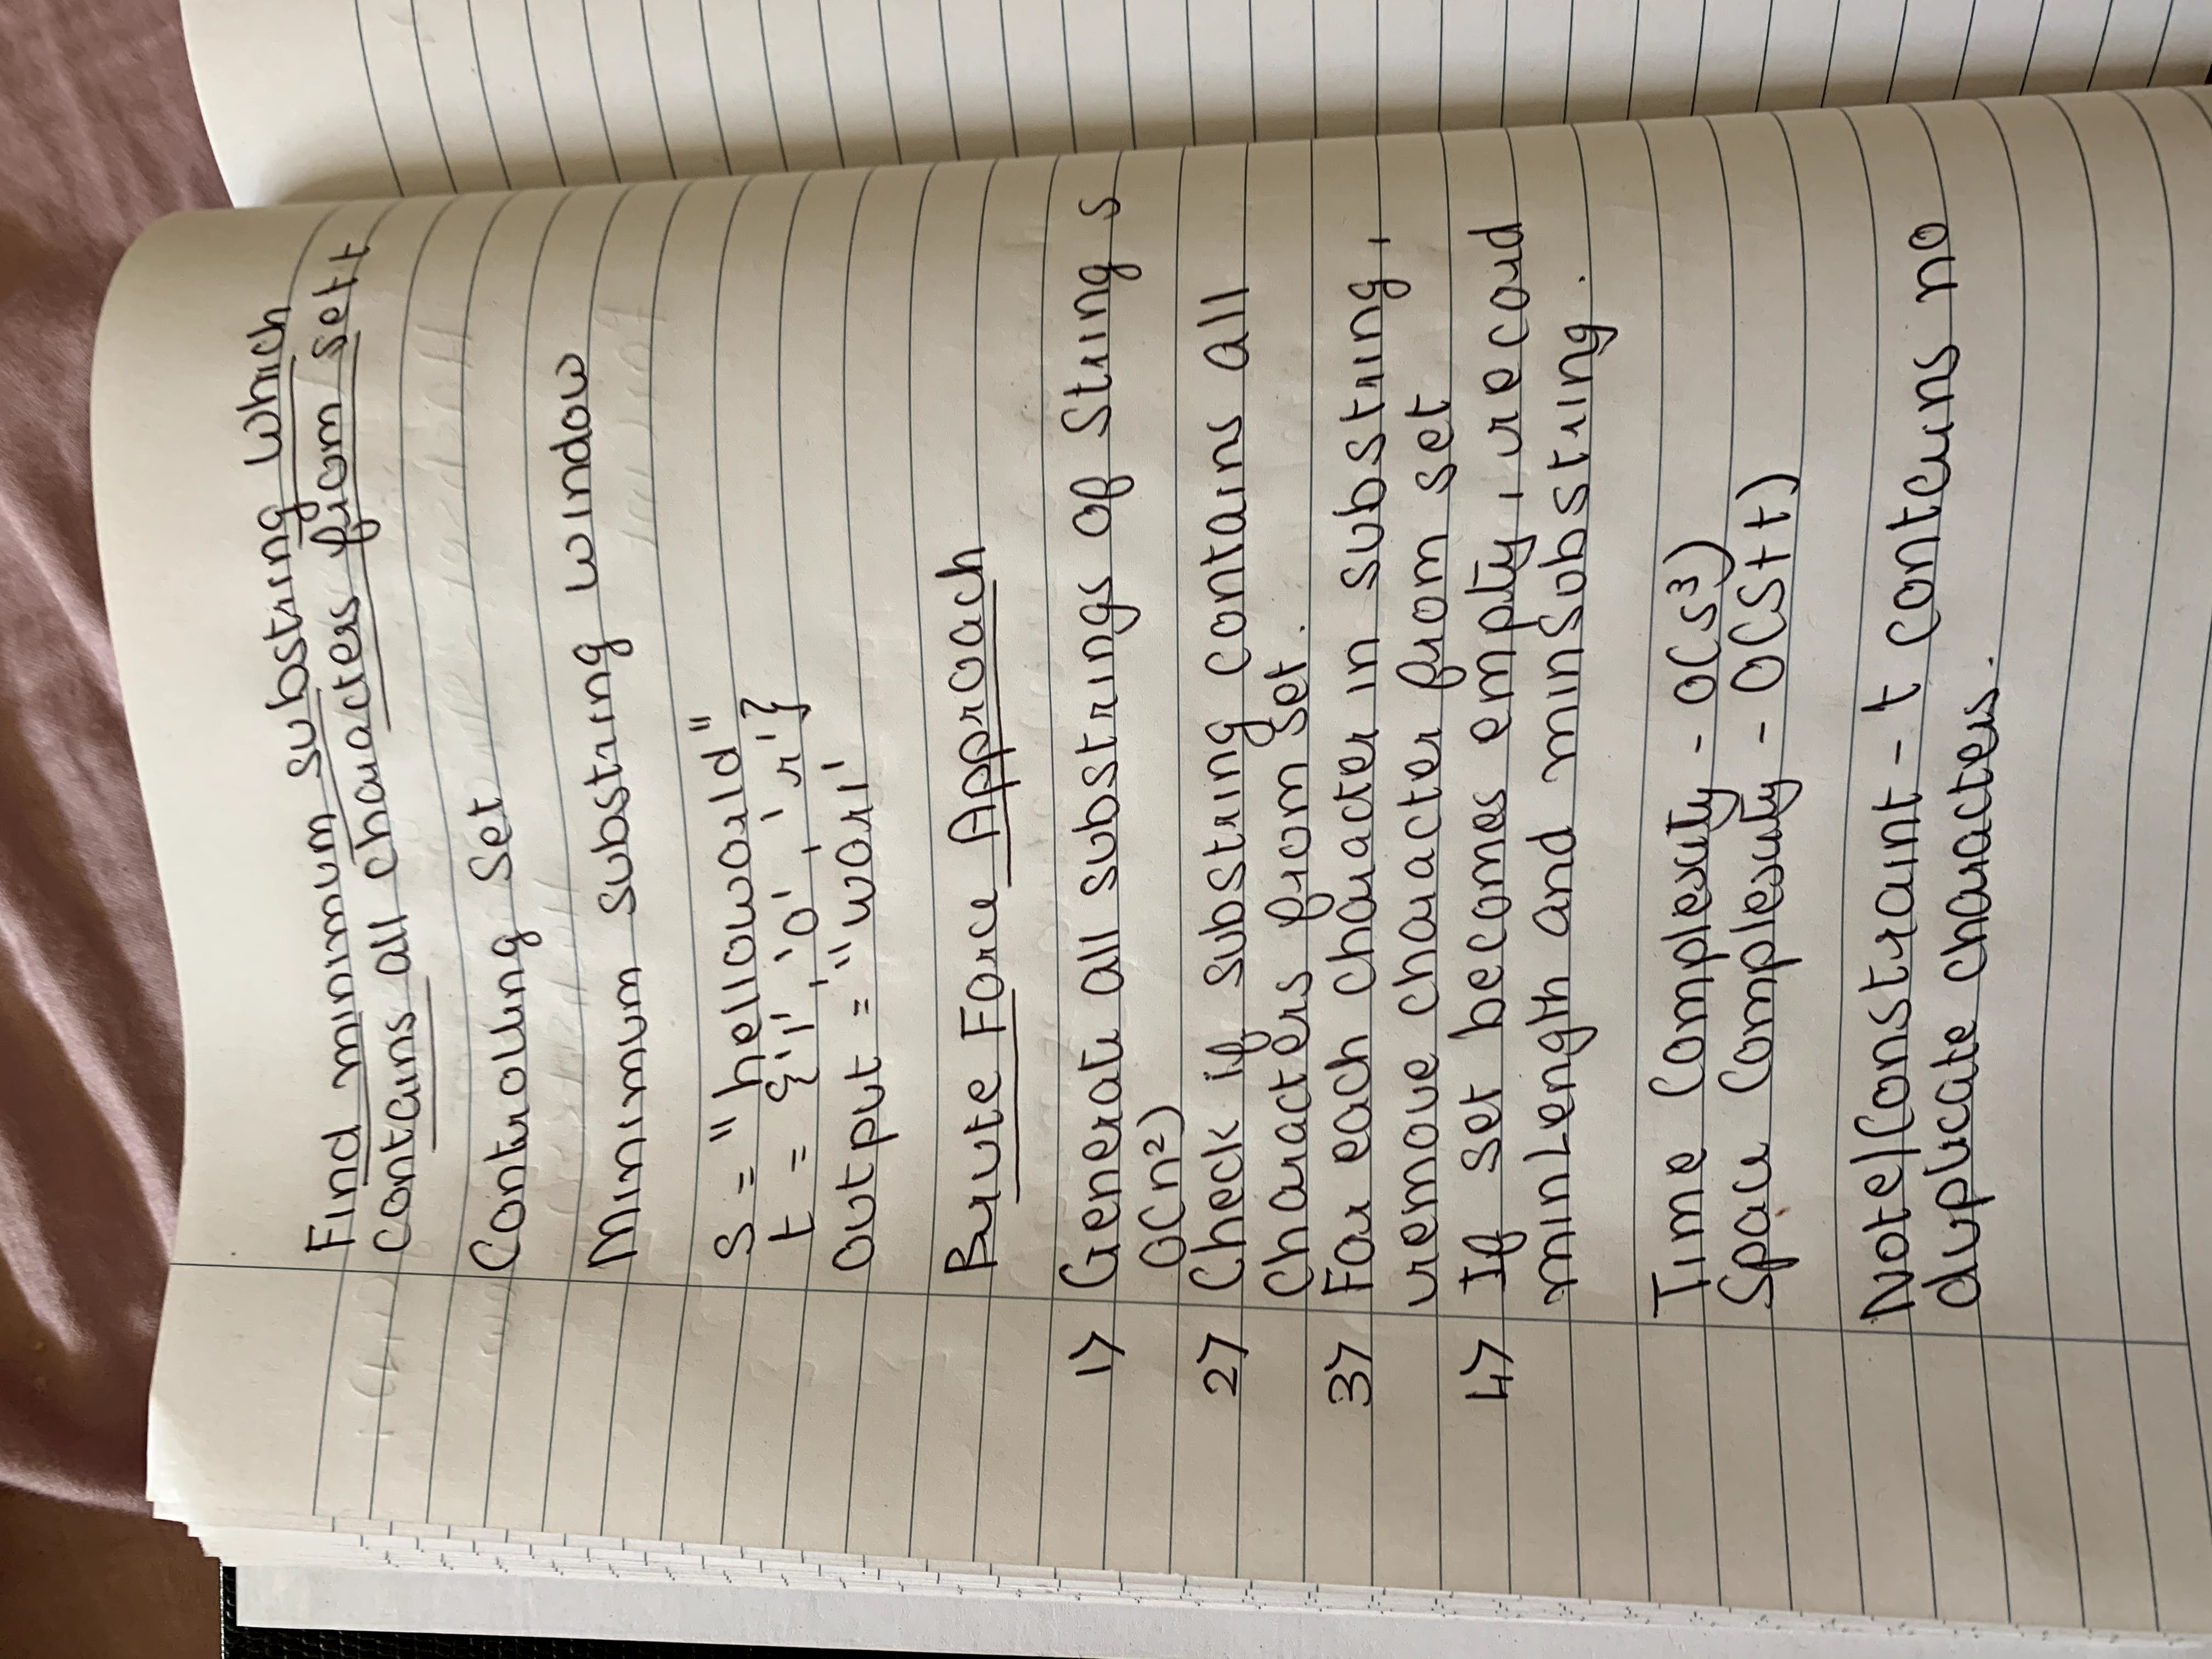 Find minimum substring which
contains all characters from set t
Controlling Set
Minimum substring window
S = "helloworld"
t = {'l', 'o', 'r'}
Output = "worl'
Brute Force Approach
1) Generate all substrings of String s
O(n²)
2) Check if substring contains all
characters from set.
3) For each character in substring,
remove character from set
4) If set becomes empty, record
minLength and minSubstring.
Time Complexity - O(s³)
Space Complexity - O(S+t)
Note/Constraint - t contains no
duplicate characters.